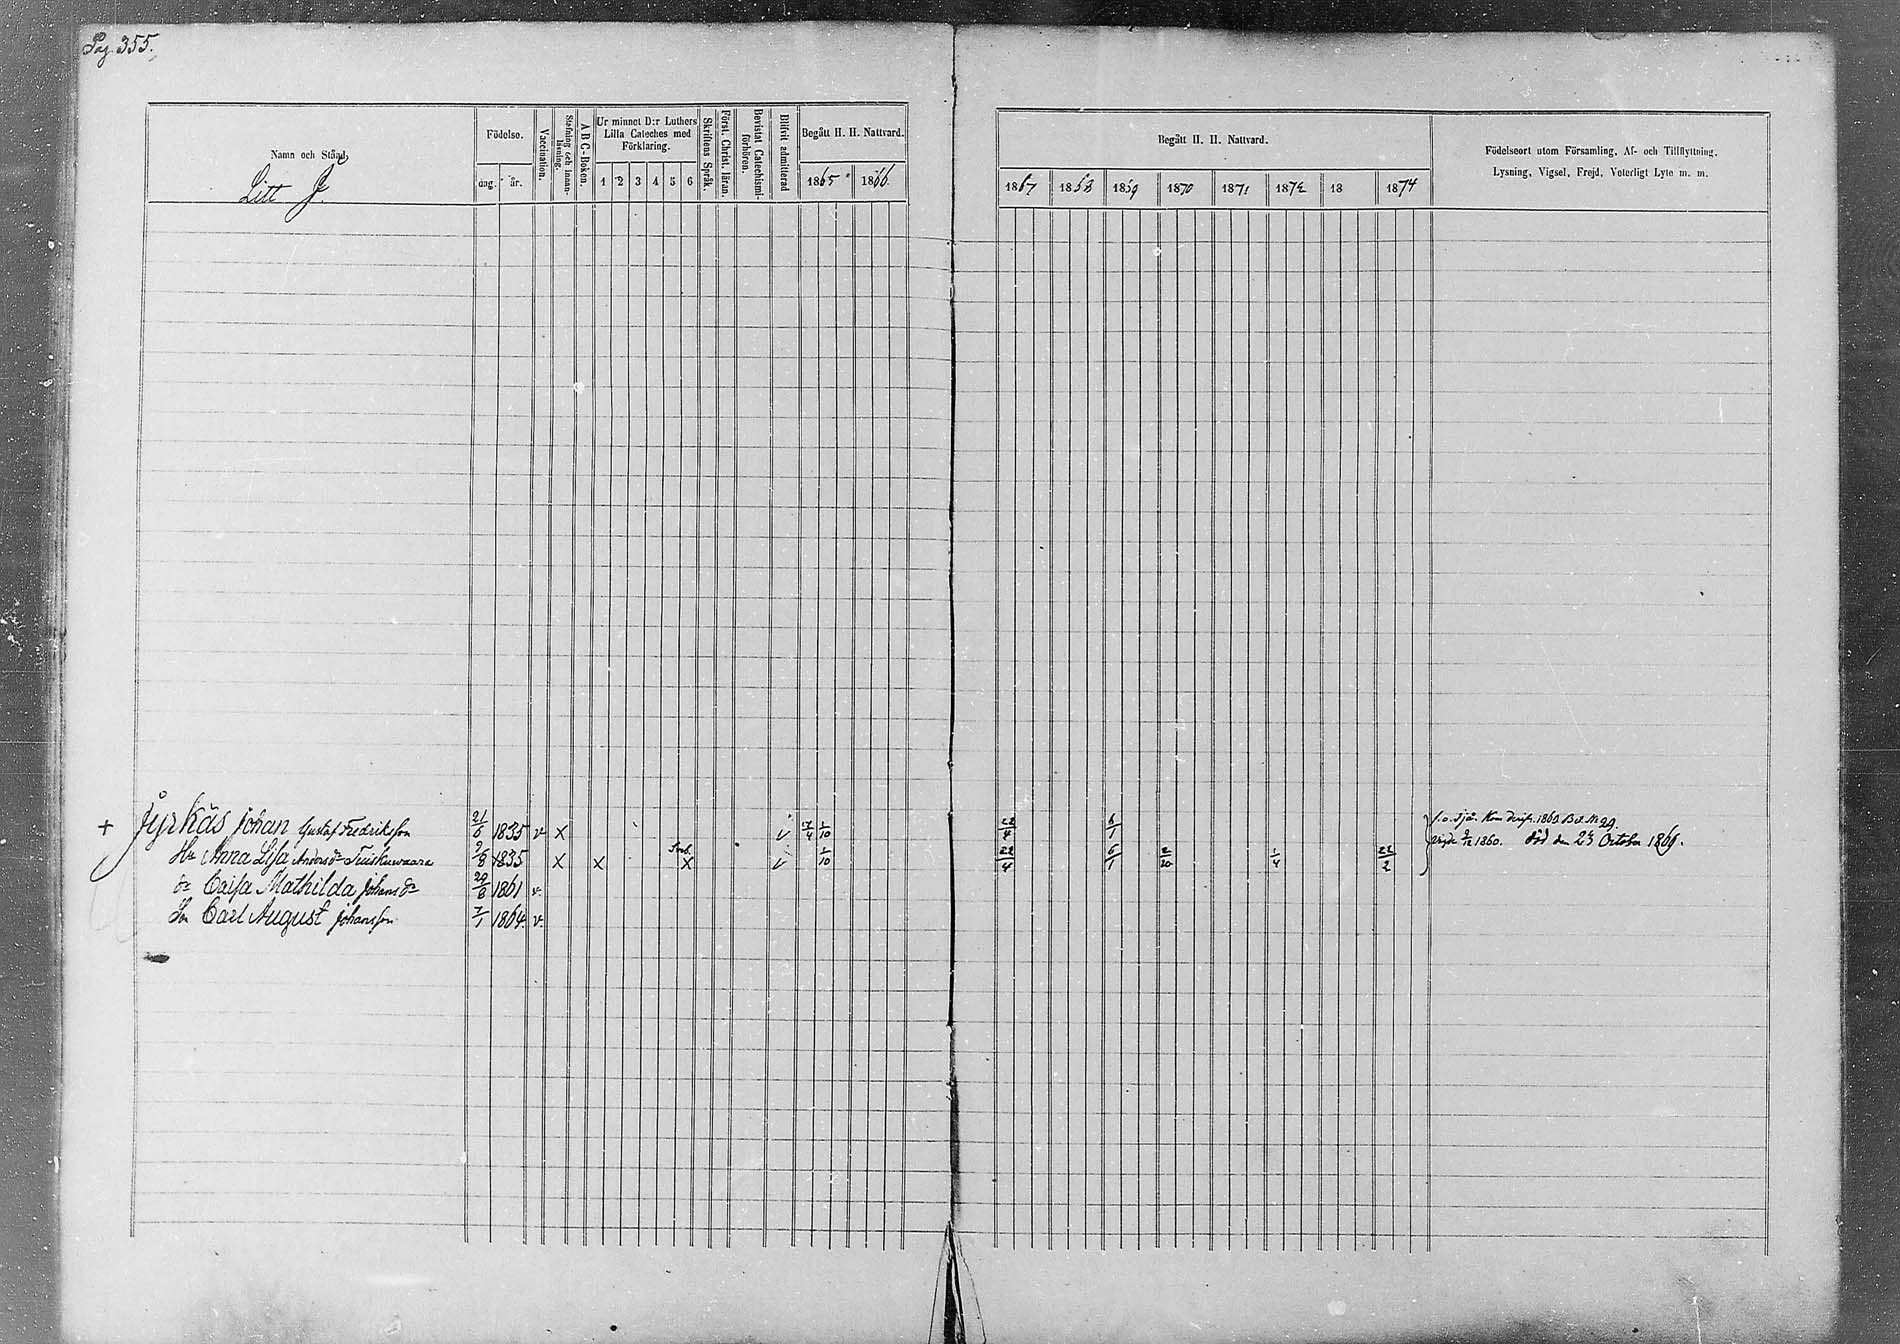 Pag. 355.
Namn och Stånd,
Litt J.
Födelse.
dag. år.
Vaccination.
Stafning och innan-
läsning.
A B C-Boken.
Ur minnet D:r Luthers
Lilla Cateches med
Förklaring.
1 2 3 4 5 6
Skriftens Språk.
Först. Christ. läran.
Bevistat Catechismi-
förhören.
Blifvit admitterad
Begått H. H. Nattvard.
1865 1866
Begått H. H. Nattvard.
1867 1868 1869 1870 1871 1872 18 1874
Födelseort utom Församling, Af- och Tillflyttning.
Lysning, Vigsel, Frejd, Veterligt Lyte m. m.
+ Jyrkäs Johan Gustaf Fredriksson 21/6 1835 v X v 17/4 1/10 6/1
Hu Anna Lisa Andersdr 1835 X X X v 1/10 22/4 6/1 2/20 1/4 22/2
dr Caisa Mathilda Johansdr 29/8 1861 v.
Son Carl August Johansson 7/1 1864. v.
1860 Bet. N 29
1860. död den 23 October 1869.